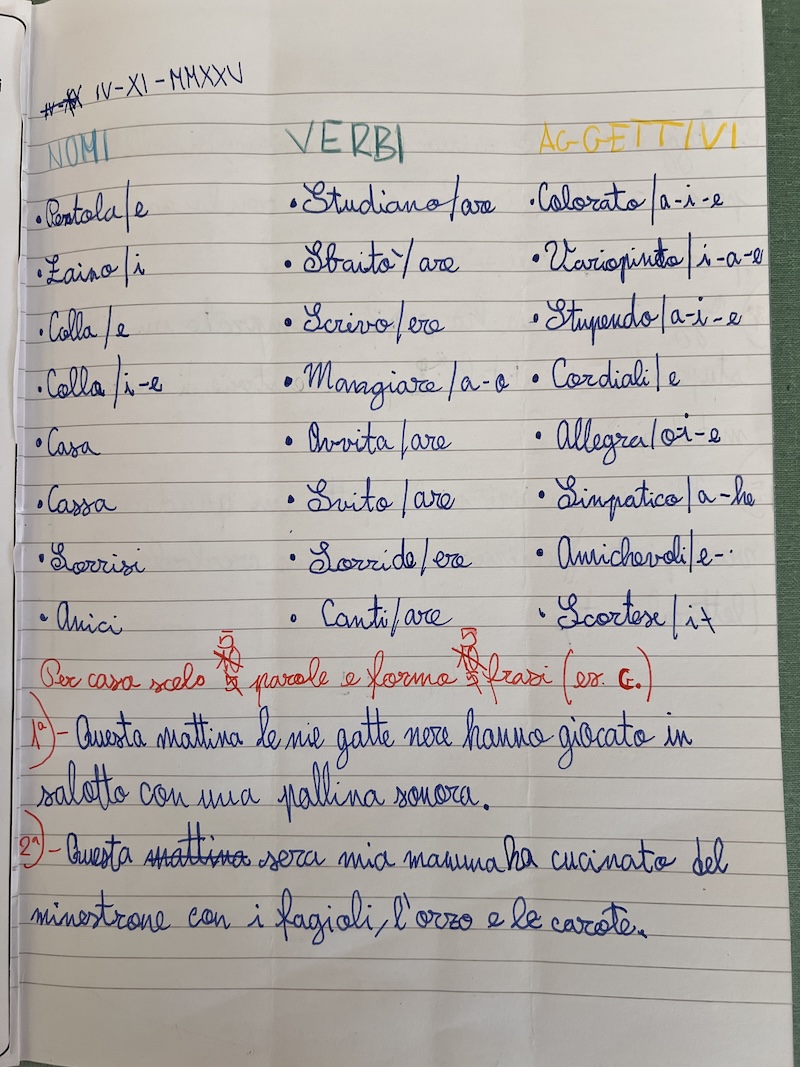 IV-XI-MMXXV
NOMI VERBI AGGETTIVI
• Pentola/e • Studiano/are • Colorato/a-i-e
• Zaino/i • Sbaitò/are • Variopinto/i-a-e
• Colla/e • Scrivo/ere • Stupendo/a-i-e
• Collo/i-e • Mangiare/a-o • Cordiali/e
• Casa • Avvita/are • Allegra/o-i-e
• Cassa • Svito/are • Simpatico/a-he
• Sorrisi • Sorrido/ere • Amichevoli/e-
• Amici • Canti/are • Scortese/i
Per casa scelo 5 parole e formo 5 frasi (es. G.)
1ª)- Questa mattina le mie gatte nere hanno giocato in
salotto con una pallina sonora.
2ª)- Questa mattina sera mia mamma ha cucinato del
minestrone con i fagioli, l'orzo e le carote.